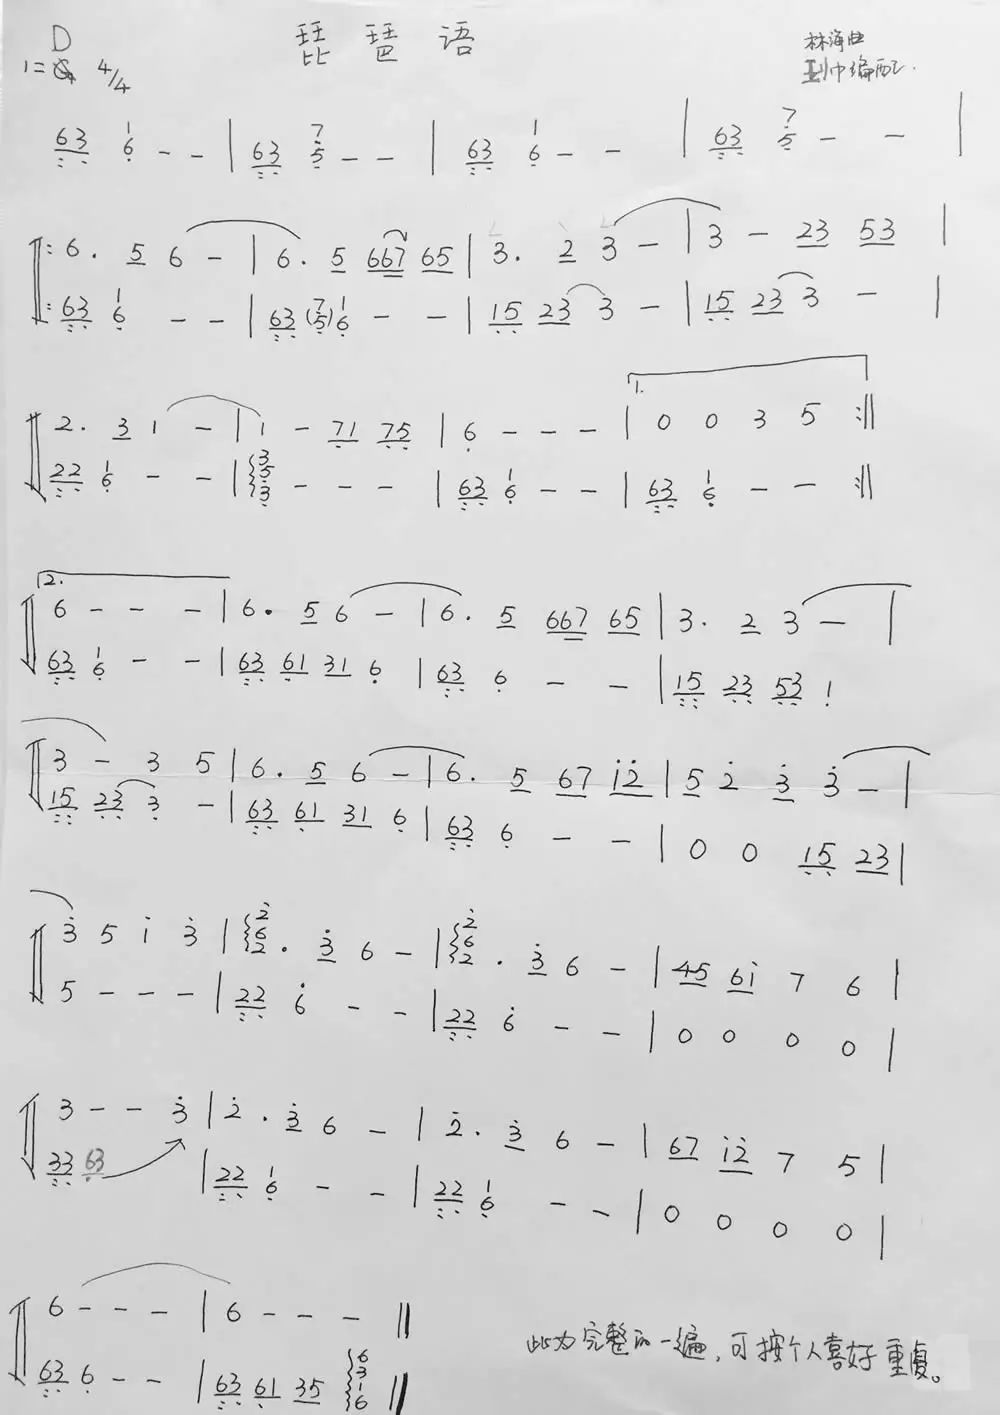 琵琶语
D
1=G 4/4
林海曲
编配
63 1 6 - - | 63 7 5 - - | 63 1 6 - - | 63 7 5 - - |
: 6 . 5 6 - | 6 . 5 667 65 | 3 . 2 3 - | 3 - 23 53 |
: 63 1 6 - - | 63 (7 5) 1 6 - - | 15 23 3 - | 15 23 3 - |
1.
2 . 3 1 - | 1 - 71 75 | 6 - - - | 0 0 3 5 :||
22 1 6 - - | 3 5 3 - - - | 63 1 6 - - | 63 1 6 - - :||
2.
6 - - - | 6 . 5 6 - | 6 . 5 667 65 | 3 . 2 3 - |
63 1 6 - - | 63 61 31 6 | 63 6 - - | 15 23 53 1
3 - 3 5 | 6 . 5 6 - | 6 . 5 67 12 | 5 2 3 3 - |
15 23 3 - | 63 61 31 6 | 63 6 - - | 0 0 15 23 |
3 5 1 3 | 2 6 2 . 3 6 - | 2 6 2 . 3 6 - | 45 61 7 6 |
5 - - - | 22 6 - - | 22 6 - - | 0 0 0 0 |
3 - - 3 | 2 . 3 6 - | 2 . 3 6 - | 67 12 7 5 |
33 63 | 22 1 6 - - | 22 1 6 - - | 0 0 0 0 |
6 - - - | 6 - - - ||
63 6 - - | 63 61 35 6 3 1 6 ||
此为完整的一遍,可按个人喜好重复。